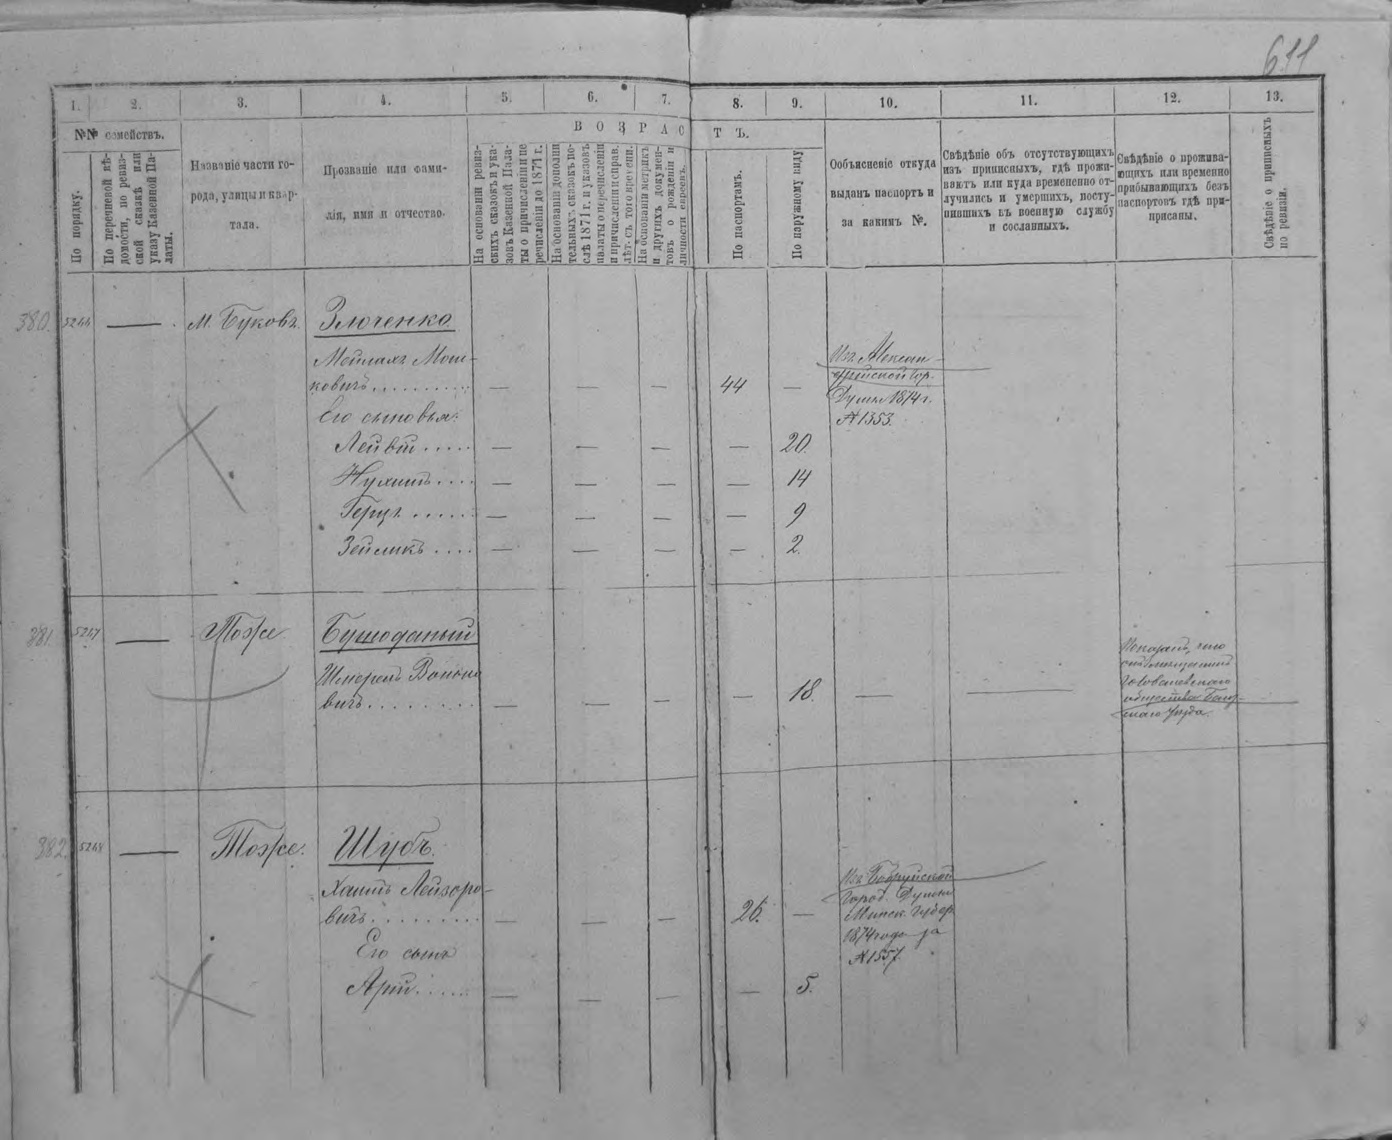 611
1.
2.
3.
4.
5.
6.
7.
8.
9.
10.
11.
12.
13.
№№ семействъ.
По порядку.
По перечневой вѣ-
домости, по ревиз-
ской сказкѣ или
указу Казенной Па-
латы.
Названіе части го-
рода, улицы и квар-
тала.
Прозваніе или фами-
лія, имя и отчество.
ВОЗРАСТЪ.
На основаніи ревиз-
скихъ сказокъ и ука-
зовъ Казенной Пала-
ты о причисленіи и пе
речисленіи до 1871 г.
На основаніи дополни
тельныхъ сказокъ по-
слѣ 1871 г. и указовъ
палаты о перечисленіи
и причисленіи и прибав.
лѣтъ съ того времени.
На основаніи метрикъ
и другихъ докумен-
товъ о рожденіи и
личности евреевъ.
По паспортамъ.
По наружному виду
Объясненіе откуда
выданъ паспортъ и
за какимъ №.
Свѣдѣніе объ отсутствующихъ
изъ приписныхъ, гдѣ прожи-
ваютъ или куда временно от-
лучились и умершихъ, посту-
пившихъ въ военную службу
и сосланныхъ.
Свѣдѣніе о прожива-
ющихъ или временно
прибывающихъ безъ
паспортовъ гдѣ при-
приписаны.
Свѣдѣніе о приписныхъ
по ревизіи.
380. 5246 — м. Буковъ. Злюченко
Мейлахъ Мош-
ковичъ . . . — — — 44 —
Изъ Алексан-
дрійской гор.
Думы 1874 г.
№ 1353.
Его сыновья:
Лейвій . . . — — — — 20.
Нухимъ . . . — — — — 14
Герцъ . . . — — — — 9
Зейликъ . . . — — — — 2.
381. 5247 — Тоже
Шмерель
вичъ . . . — — — — 18. — —
Показалъ, что
общества
уѣзда.
382. 5248 — Тоже. Шубъ.
Хаимъ Лейзоро-
вичъ . . . — — — 26. —
Изъ Бобруйской
Город. Думы
Минск. губер.
1874 года за
№ 1557.
Его сынъ
Арій . . . — — — — 5.